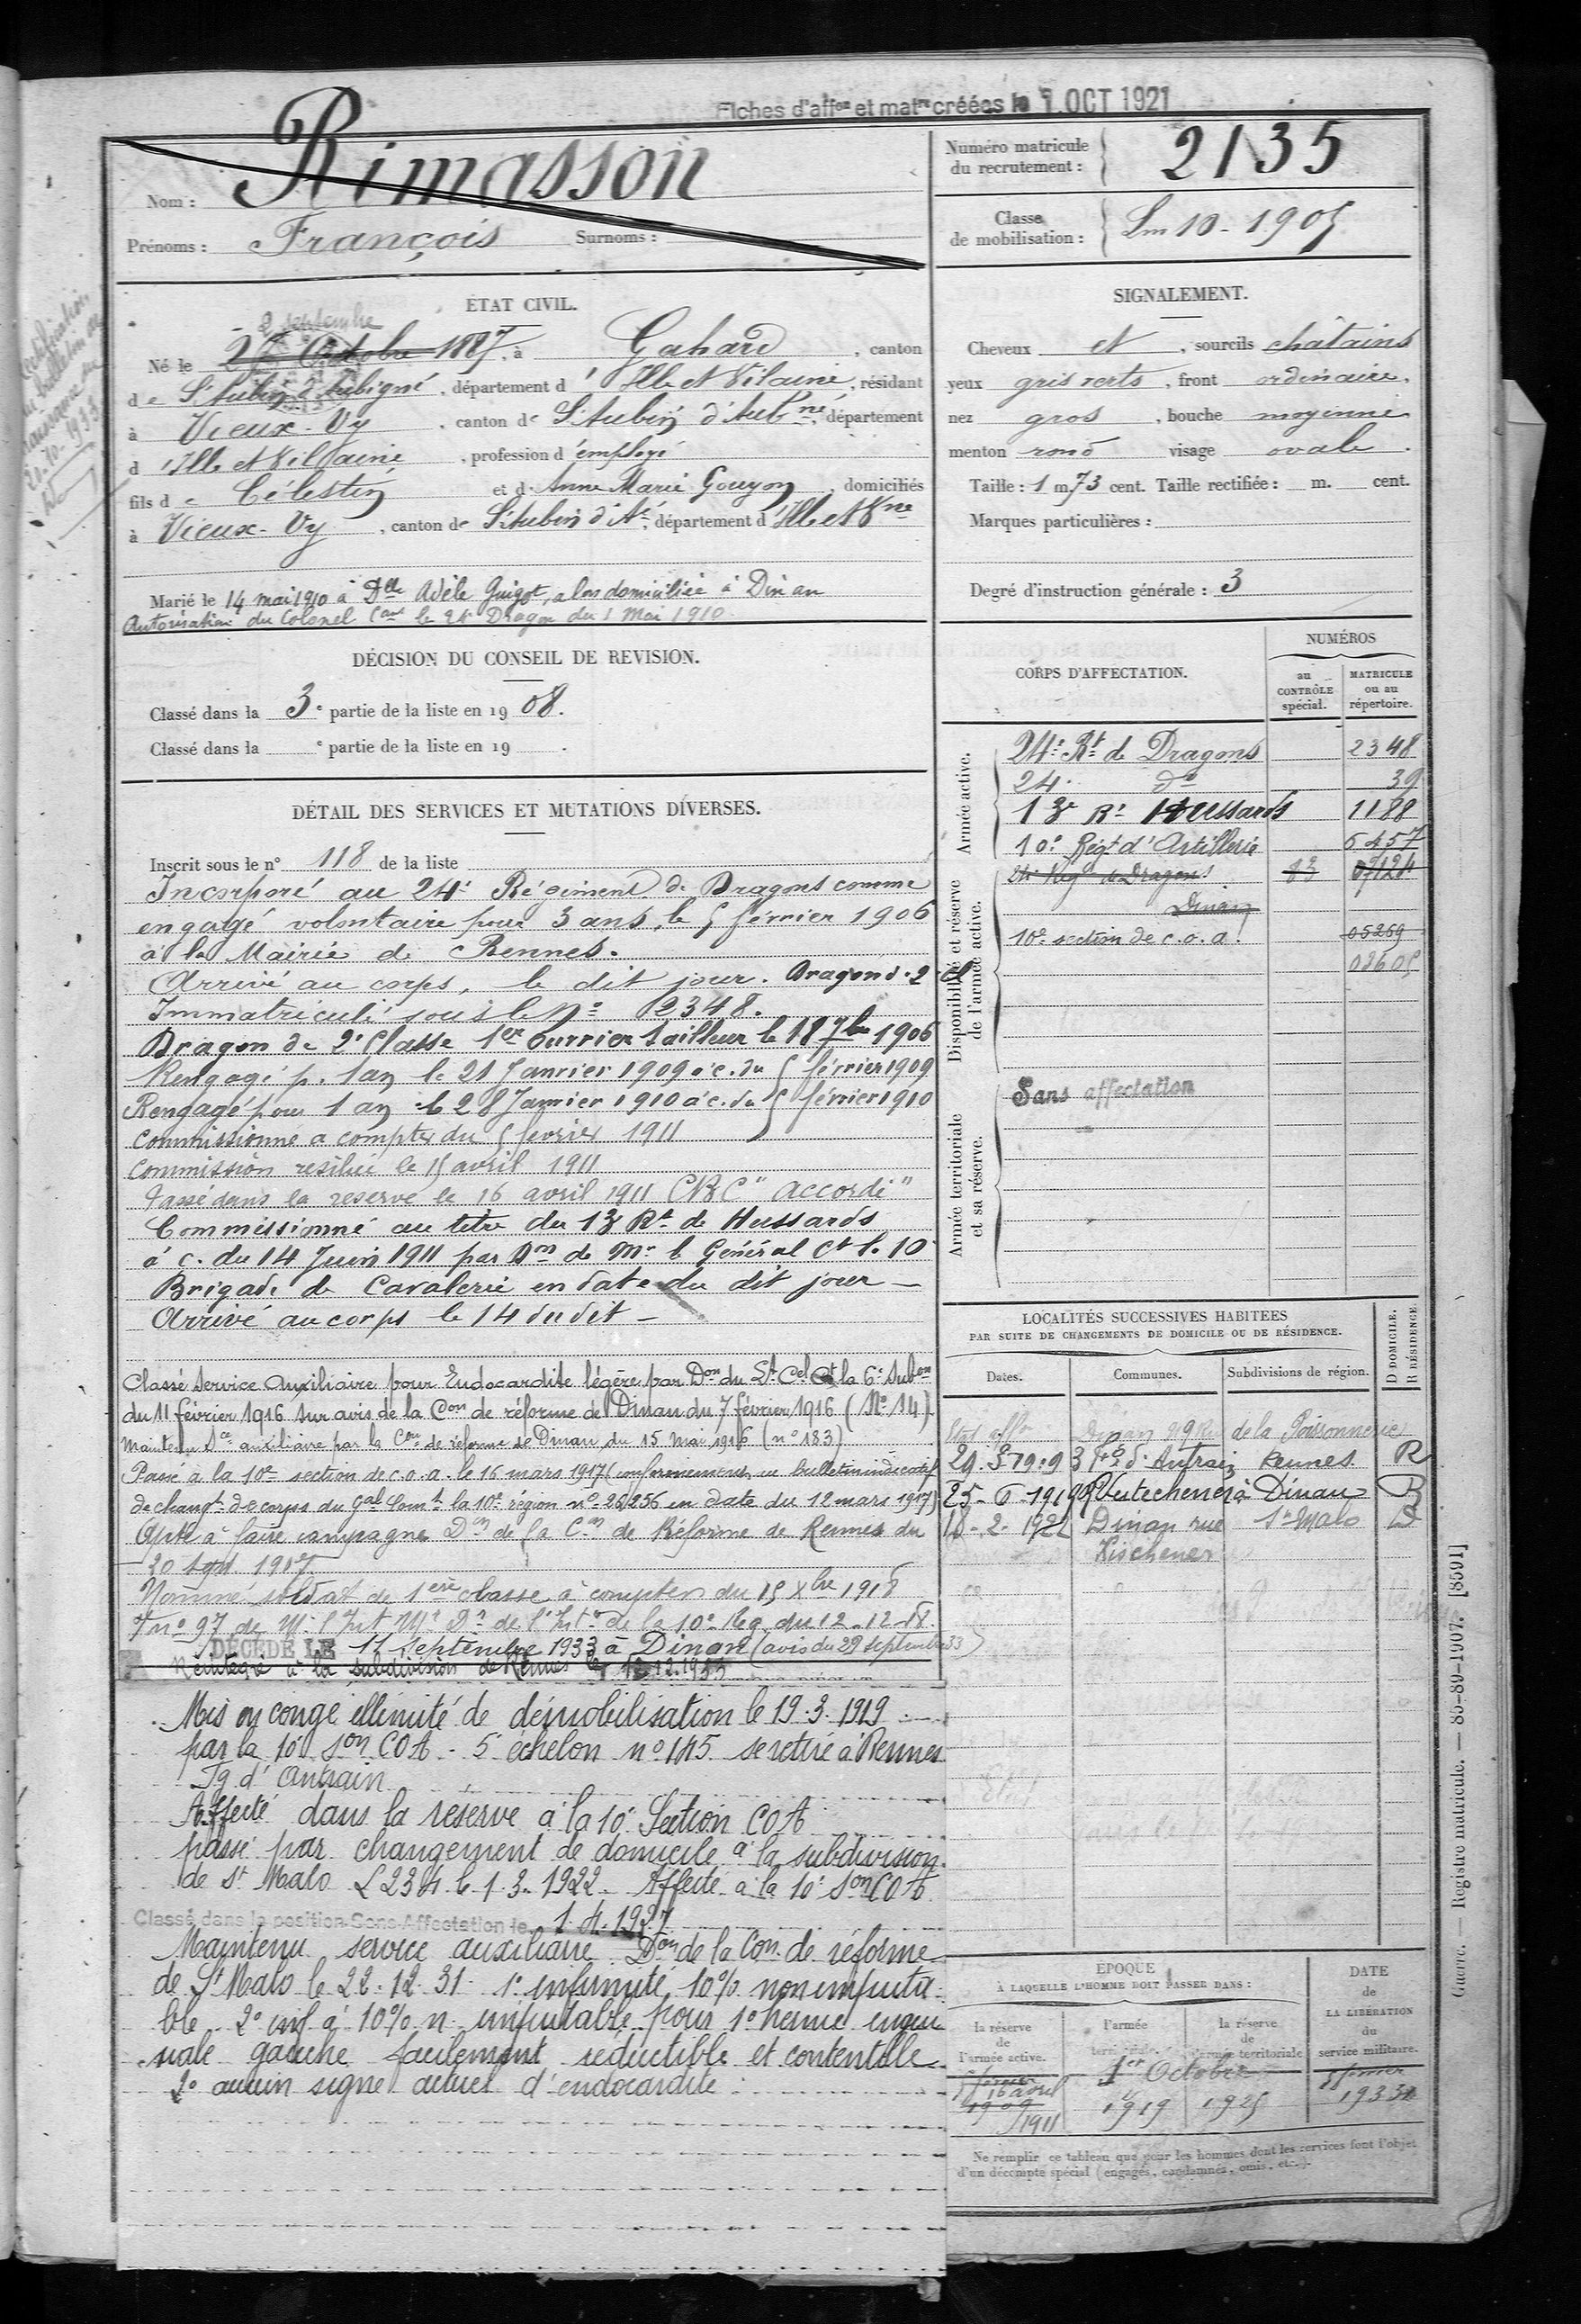 Fiches d'affon et matre créées le 1 OCT 1921
Nom : Rimasson
Prénoms : François Surnoms :
Numéro matricule du recrutement : 2135
Classe de mobilisation : Lm 10 - 1905
ÉTAT CIVIL.
2 septembre
Né le Octobre 1887, à Gahard, canton
de St Aubin d'Aubigné, département d'Ille et Vilaine, résidant
à Vieux-Vy, canton de St Aubin d'Aubné, département
d'Ille et Villaine, profession d'employé
fils de Célestin et d. Anne Marie Gouyon, domiciliés
à Vieux-Vy, canton de St Aubin d'Aé, département d'Ille et Vne
Marié le 14 mai 1910 à Dlle Adèle Guigot, alors domiciliée à Dinan
Autorisation du Colonel Cant le 24e Dragon du 1 Mai 1910
SIGNALEMENT.
Cheveux et, sourcils châtains
yeux gris verts, front ordinaire.
nez gros, bouche moyenne
menton rond visage ovale.
Taille : 1 m 73 cent. Taille rectifiée : m. cent.
Marques particulières :
Degré d'instruction générale : 3
DÉCISION DU CONSEIL DE REVISION.
Classé dans la 3e partie de la liste en 1908.
Classé dans la e partie de la liste en 19 .
DÉTAIL DES SERVICES ET MUTATIONS DIVERSES.
Inscrit sous le n° 118 de la liste
Incorporé au 24e Régiment de Dragons comme
engagé volontaire pour 3 ans, le 5 février 1906
à la Mairie de Rennes.
Arrivé au corps, le dit jour. Dragon d. 2 cl
Immatriculé sous le No 2348.
Dragon de 2e Classe 1er ouvrier tailleur le 18 7bre 1906
Rengagé p. 1 an le 21 Janvier 1909 à c. du 5 février 1909
Rengagé pour 1 an le 28 Janvier 1910 à c. du 5 février 1910
Commissionné a compter du 5 fevrier 1911
Commission resiliée le 15 avril 1911
Passé dans la reserve le 16 avril 1911 CBC "accordé"
Commissionné au titre du 13 Rt de Hussards
à c. du 14 Juin 1911 par Don de Mr le Général Ct l. 10e
Brigade de Cavalerie en date du dit jour -
Arrivé au corps le 14 dudit -
Classé Service Auxiliaire pour Endocardite légère par Don du Lt Cel Ct la 6e Subon
du 11 février 1916 sur avis de la Con de réforme de Dinan du 7 février 1916 (No 14).
Maintenu Sce auxiliaire par la Con de réforme de Dinan du 15 mai 1916 (n° 183)
Passé à la 10e section de c.o.a. le 16 mars 1917 (conformément au bulletin indicatif
de changt de corps du Gal Comt la 10e région n° 26256 en date du 12 mars 1917)
Apte à faire campagne Don de la Con de Réforme de Rennes du
20 1917
Nommé soldat de 1ère classe à compter du 15 Xbre 1918
n° 97 de Mr l'Int Mre Dr de l'Int de la 10e Reg. du 12-12-18.
DÉCÉDÉ LE 11 septembre 1933 à Dinan (avis du 29 septembre 33)
Réintégré à la subdivision de Rennes le
Mis en congé illimité de démobilisation le 19.3.1919
par la 10e Son COA - 5e échelon n° 145 se retire à Rennes
Fg d'Antrain
Affecté dans la réserve à la 10e Section COA
passé par changement de domicile à la subdivision
de St Malo L 234 le 1.3.1922. Affecté à la 10e Son COA
Classé dans la position Sans Affectation le 1.4.1927
Maintenu service auxiliaire Don de la Con de réforme
de St Malo le 22.12.31. 1° infirmité 10% non imputa-
ble. 2° inf. à 10% n. imputable pour 1° hernie ingui
nale gauche facilement réductible et contentible
2° aucun signe actuel d'endocardite
CORPS D'AFFECTATION.
NUMÉROS
au CONTRÔLE spécial.
MATRICULE ou au répertoire.
Armée active.
24e Rt de Dragons 2348
24e do 39
13e Rt Hussards 1188
10e Regt d'Artillerie 6457
Disponibilité et réserve de l'armée active.
24e Regt de Dragons
Dinan
10e section de c.o.a. 05269
02605
Armée territoriale et sa réserve.
Sans affectation
LOCALITÉS SUCCESSIVES HABITEES
PAR SUITE DE CHANGEMENTS DE DOMICILE OU DE RÉSIDENCE.
Dates. Communes. Subdivisions de région. D DOMICILE. R RÉSIDENCE
Dinan de la Poissonnerie
29.3.1919 Fg d'Antrain Rennes R
25-6-1919 à Dinan
18-2-1922 Dinan rue St Malo D
Kischener
ÉPOQUE
À LAQUELLE L'HOMME DOIT PASSER DANS :
DATE de LA LIBÉRATION du service militaire.
la réserve de l'armée active.
l'armée territoriale.
la réserve de l'armée territoriale
1er Octobre
16 avril
1909
1911
1919 1925
Ne remplir ce tableau que pour les hommes dont les services font l'objet
d'un décompte spécial (engagés, condamnés, omis, etc.).
Guerre. — Registre matricule. — 85-89-1907. [8591]